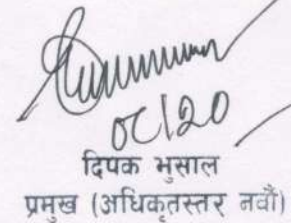 दिपक भुसाल
प्रमुख (अधिकृतस्तर नवौं)